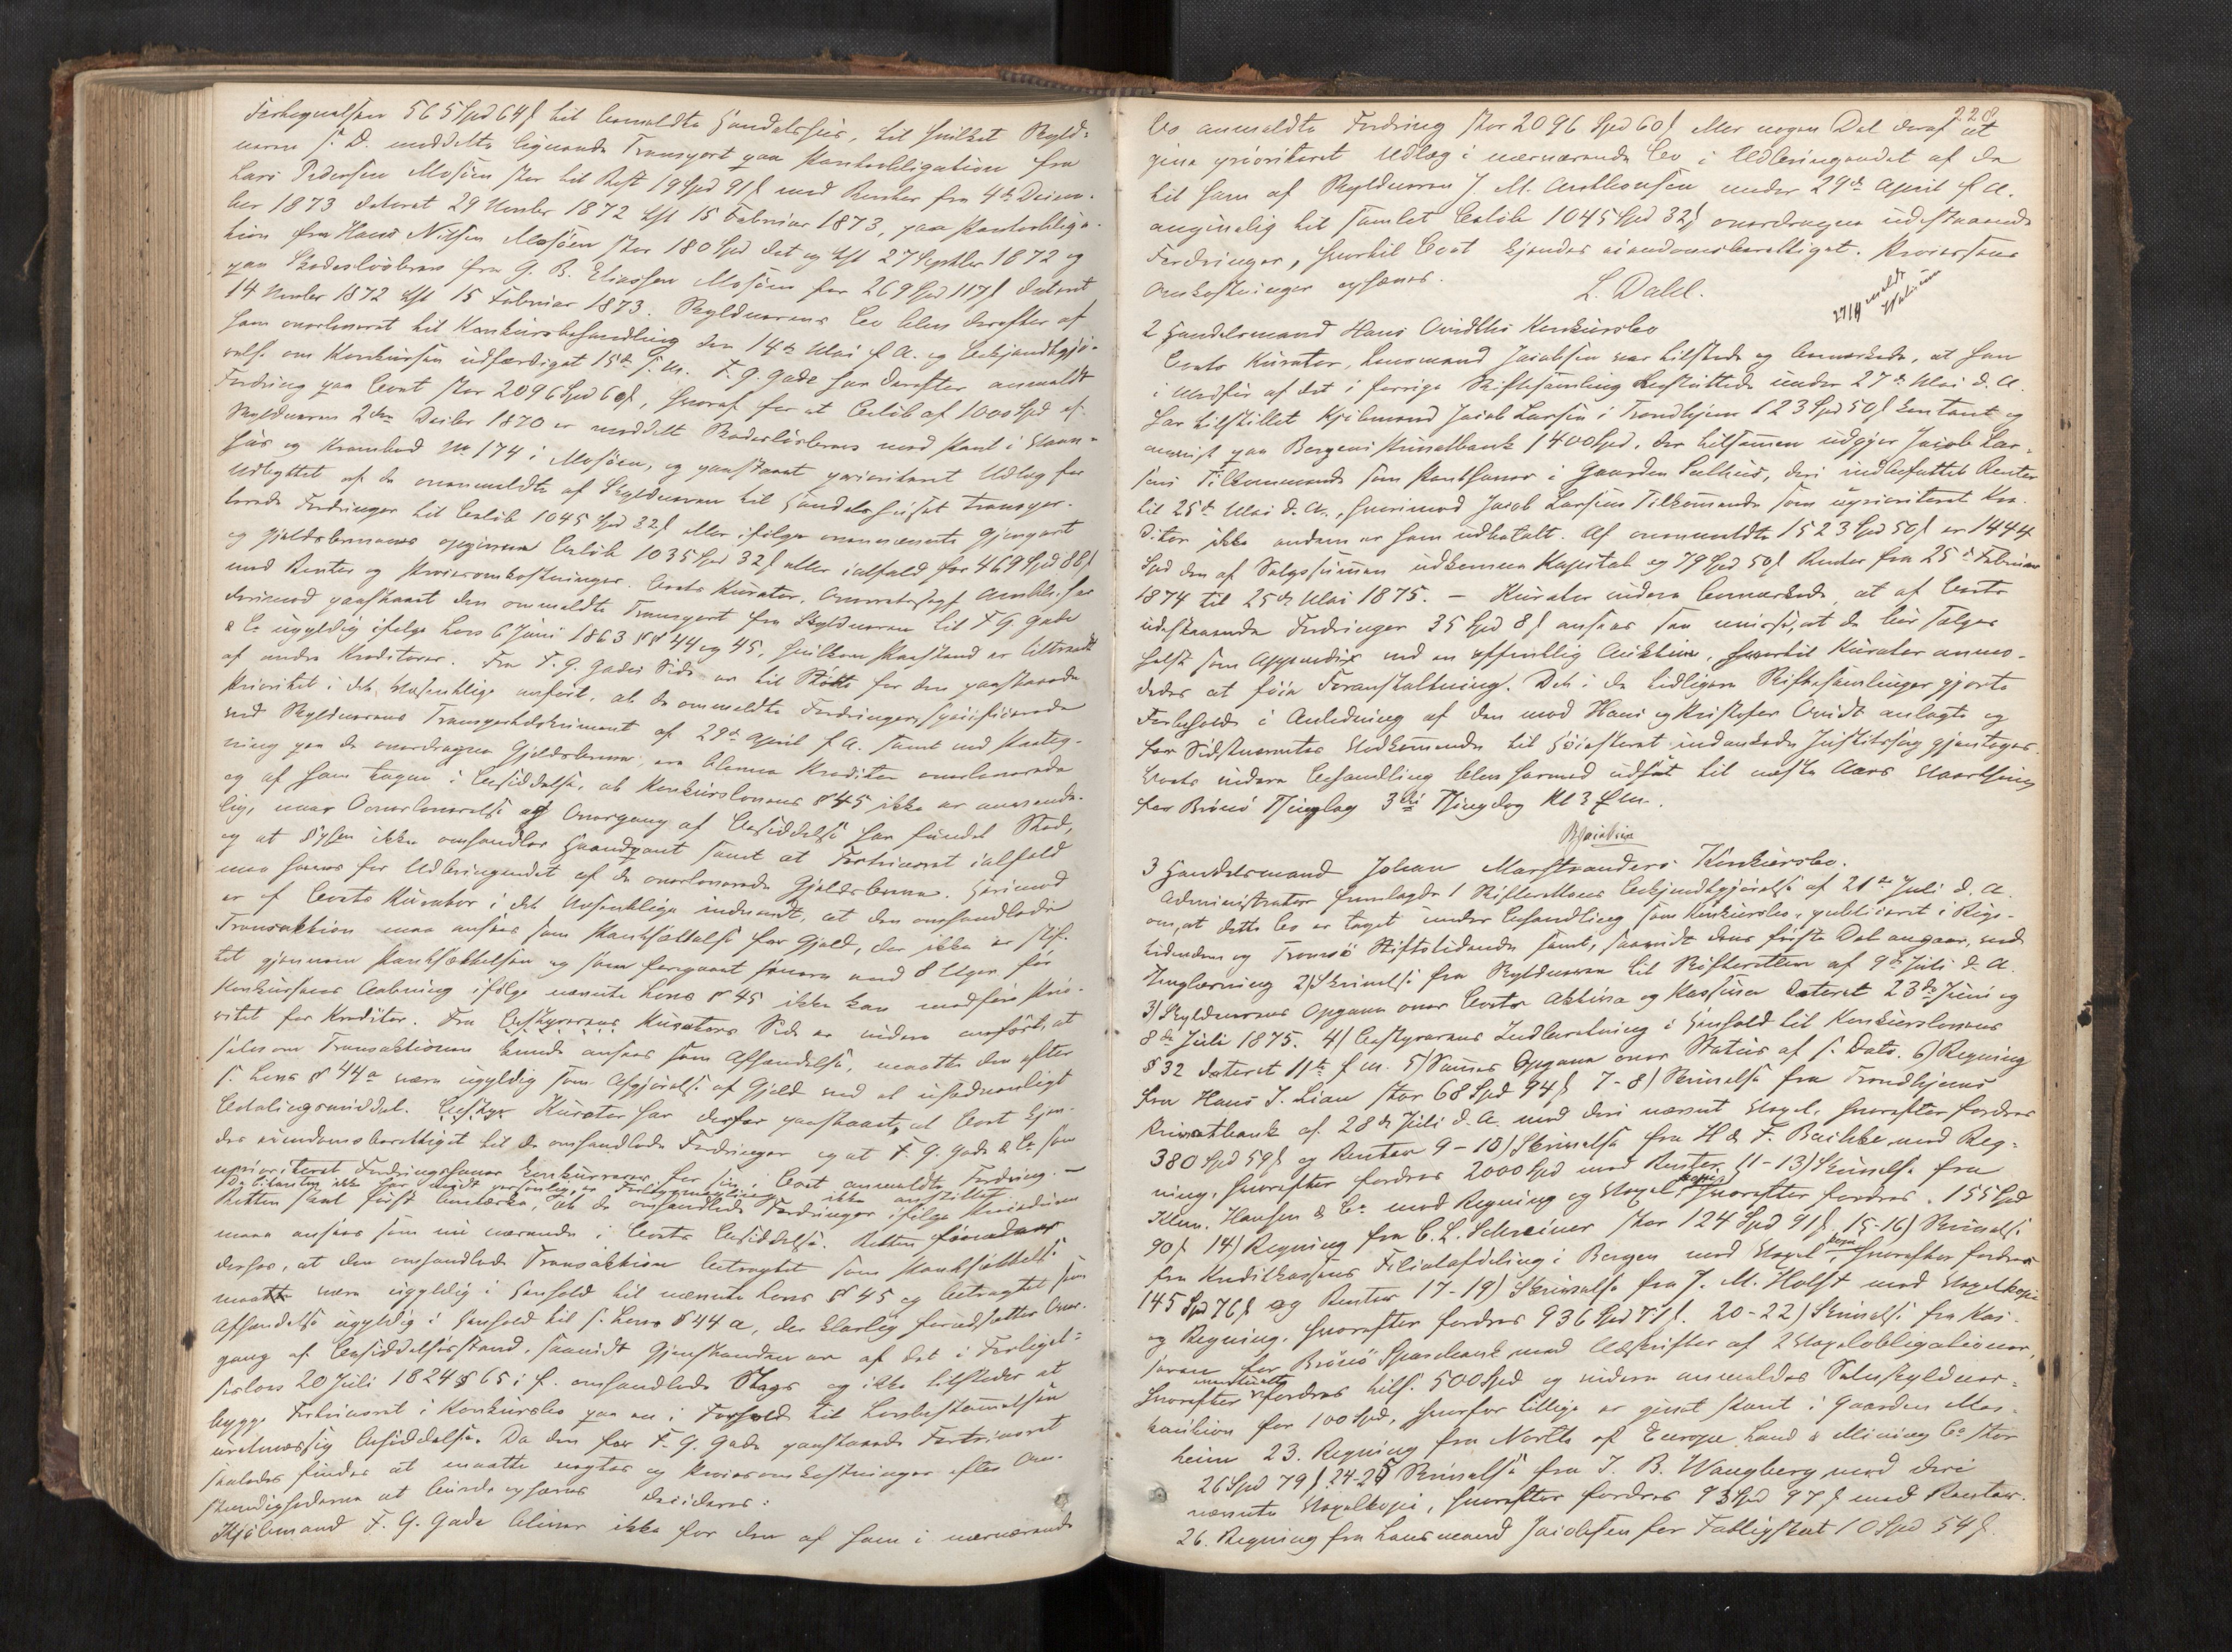 Fortegnelsen 565 Spd 64 ſ til anmeldte Handelshus, til hvilket Skyld-
neren s. D. meddelte lignende Transport paa Pantobligation fra
Lars Pedersen Mosjøen stor til Rest 19 Spd 91 ſ med Renter fra 4de Decem-
ber 1873 dateret 29 Novber 1872 tgl. 15 Februar 1873, paa Pantobliga-
tion fra Hans Nilsen Mosjøen stor 180 Spd dat og tgl 27 Septbler 1872 og
paa Skadesløsbrev fra G. B. Eliassen Mosjøen for 269 Spd 117 ſ dateret
14 Novber 1872 tgl 15 Februar 1873. Skyldnerens Bo blev derefter af
ham overleveret til Konkursbehandling den 14de Mai f. A. og Bekjendtgjø-
relse om Konkursen udfærdiget 15de s. M. F. G. Gade har derefter anmeldt
Fordring paa Boet stor 2096 Spd 60 ſ, hvoraf for et Beløb af 1000 Spd af
Skyldneren 2den Decber 1870 er meddelt Skadesløsbrev med Pant i Vaan-
hus og Krambod No 174 i Mosjøen, og paastaaet prioriteret Udlæg for
Udbyttet af de ovenmeldte af Skyldneren til Handelshuset transpor-
terede Fordringer til Beløb 1045 Spd 32 ſ eller ifølge ovennævnte Gjenpart
og Gjældsbrevenes opgivne Beløb 1035 Spd 32 ſ eller ialfald for 469 Spd 88 ſ
med Renter og Procesomkostninger. Boets Kurator, Overretssagf. Amble, har
derimod paastaaet den ommeldte Transport fra Skyldneren til F. G. Gade
& Co ugyldig ifølge Lov 6 Juni 1863 §§ 44 og 45, hvilken Paastand er tiltraadt
af andre Kreditorer. Fra F. G. Gades Side er til Støtte for den paastaaede
Prioritet i det Væsentlige anført, at de ommeldte Fordringer, specificerede
ved Skyldnerens Transportdokument af 29de April f. A. samt ved Paateg-
ning paa de overdragne Gjældsbreve, ere blevne Kreditor overleverede
og af ham tagne i Besiddelse, at Konkurslovens § 45 ikke er anvende-
lig, naar Overleverelse og Overgang af Besiddelse har fundet Sted,
og at §'ssen ikke omhandler Haandpant samt at Fortrinsret ialfald
maa haves for Udbringendet af de overleverede Gjældsbreve. Herimod
er af Boets Kurator i det Væsentlige indvendt, at den omhandlede
Transaktion maa ansees som Pantsættelse for Gjæld, der ikke er stif-
tet gjennem Pantsættelsen og som foregaaet senere end 8 Uger før
Konkursens Aabning ifølge nævnte Lovs § 45 ikke kan medføre Prio-
ritet for Kreditor. Fra Bestyrerens Kurators Side er videre anført, at
selv om Transaktionen kunde ansees som Afhændelse, maatte den efter
s. Lovs § 44 a være ugyldig som Afgjørelse af Gjæld ved et usædvanligt
Betalingsmiddel. Kurator har derfor paastaaet, at Boet kjen-
des eiendomsberettiget til de omhandlede Fordringer og at F. G. Gade & Co som
uprioriteret Fordringshaver konkurrerer for sin i Boet anmeldte Fordring. —
Da Citanten ikke har mødt personlig, er Forligsmægling ikke anstillet.
Retten skal først bemærke, at de omhandlede Fordringer ifølge Proceduren
maa ansees som nu værende i Boets Besiddelse. Retten formener
derhos, at den omhandlede Transaktion betragtet som Pantsættelse
maatte være ugyldig i Henhold til nævnte Lovs § 45 og betragtet som
Afhændelse ugyldig i Henhold til s. Lovs § 44 a, der klarlig forudsætter Over-
gang af Besiddelsesstand, saavidt Gjenstanden er af det i Forligel-
seslov 20 Juli 1824 § 65 i f. omhandlede Slags og ikke tilsteder at
bygge Fortrinsret i Konkursbo paa en i Forhold til Lovbestemmelsen
uretmæssig Besiddelse. Da den for F. G. Gade paastaaede Fortrinsret
saaledes findes at maatte nægtes og Procesomkostninger efter Om-
stændighederne at burde ophæves decideres:
Kjøbmand F. G. Gade bliver ikke for den af ham i nærværende
228
Bo anmeldte Fordring stor 2096 Spd 60 ſ eller nogen Del deraf at
give prioriteret Udlæg i nærværende Bo i Udbringendet af de
til ham af Skyldneren J. M. Anthonsen under 29de April f. A.
angivelig til samlet Beløb 1045 Spd 32 ſ overdragne udestaaende
Fordringer, hvortil Boet kjendes eiendomsberettiget. Processens
Omkostninger ophæves.
L. Dahl.
2 Handelsmand Hans Qvidths Konkursbo
Boets Kurator, Lensmand Jacobsen var tilstede og bemærkede, at han
i Medfør af det i forrige Skiftesamling Besluttede under 27de Mai d. A.
har tilstillet Kjøbmand Jacob Larsen i Trondhjem 123 Spd 50 ſ kontant og
anvist paa Bergens Privatbank 1400 Spd, der tilsammen udgjør Jacob Lar-
sens Tilkommende som Panthaver i Gaarden Sælhus, deri indbefattet Renter
til 25de Mai d. A., hvorimod Jacob Larsens Tilkommende som uprioriteret Kre-
ditor ikke endnu er ham udbetalt. Af ovenmeldte 1523 Spd 50 ſ er 1444
Spd den af Salgssummen udkomne Kapital og 79 Spd 50 ſ Renter fra 25de Februar
1874 til 25de Mai 1875. — Kurator videre bemærkede, at af Boets
udestaaende Fordringer 35 Spd 8 ſ ansees saa uvisse, at de bør sælges
helst som Appendix ved en offentlig Auktion, hvortil Kurator anmo-
dedes at føie Foranstaltning. Det i de tidligere Skiftesamlinger gjorte
Forbehold i Anledning af den mod Hans og Kristofer Qvidt anlagte og
for Sidstnævntes Vedkommende til Høiesteret indankede Justitssag gjentages.
Boets videre Behandling blev hermed udsat til næste Aars Vaarthing
for Brønø Thinglag 3die Thingdag Kl 3 Em.
3 Handelsmand Johan Marstranders Konkursbo.
Administrator fremlagde 1 Skifterettens Bekjendtgjørelse af 21de Juli d. A.
om, at dette Bo er taget under Behandling som Konkursbo, publiceret i Rigs-
tidenden og Tromsø Stiftstidende samt, saavidt dens første Del angaar, ved
Thinglæsning 2) Skrivelse fra Skyldneren til Skifteretten af 9de Juli d. A.
3) Skyldnerens Opgave over Boets Aktiva og Passiva dateret 23de Juni og
8de Juli 1875. 4) Bestyrerens Indberetning i Henhold til Konkurslovens
§ 32 dateret 11te f. m. 5) Sammes Opgave over Status af s. Dato. 6) Regning
fra Hans J. Lian stor 68 Spd 94 ſ 7-8) Skrivelse fra Trondhjems
Privatbank af 28de Juli d. A. med deri nævnt Vexel, hvorefter fordres
380 Spd 59 ſ og Renter 9-10) Skrivelse fra H & F. Bachke med Reg-
ning, hvorefter fordres 2000 Spd med Renter. 11-13) Skrivelse fra
Klem. Hansen & Co med Regning og Vexelkopi, hvorefter fordres 155 Spd
90 ſ 14) Regning fra C. L. Schreiner stor 124 Spd 91 ſ. 15-16) Skrivelse
fra Kreditkassens Filialafdeling i Bergen med Vexelkopi hvorefter fordres
145 Spd 76 ſ og Renter 17-19) Skrivelse fra J. M. Holst med Vexelkopi
og Regning, hvorefter fordres 936 Spd 71 ſ. 20-22) Skrivelse fra Kas-
sereren for Brønø Sparebank med Udskrifter af 2 Vexelobligationer,
hvorefter fordres tils. 500 Spd og videre anmeldes Selvskyldner-
kaution for 100 Spd, hvorfor tillige er givet Pant i Gaarden Mar-
heim 23. Regning fra North of Europe Land & Mining Co stor
26 Spd 79 ſ 24-25 Skrivelse fra J. B. Wangberg med deri
nævnte Vexelkopi, hvorefter fordres 93 Spd 97 ſ med Renter.
26. Regning fra Lensmand Jacobsen for Fattigskat 10 Spd 54 ſ.